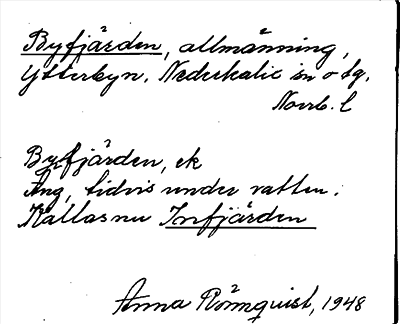 Byfjärden, allmänning,
Ytterbyn. Nederkalix sn o tg.
Norrb. l
Byfjärden, ek
Äng, tidvis under vatten.
Kallas nu Infjärden
Anna Rönnquist, 1948